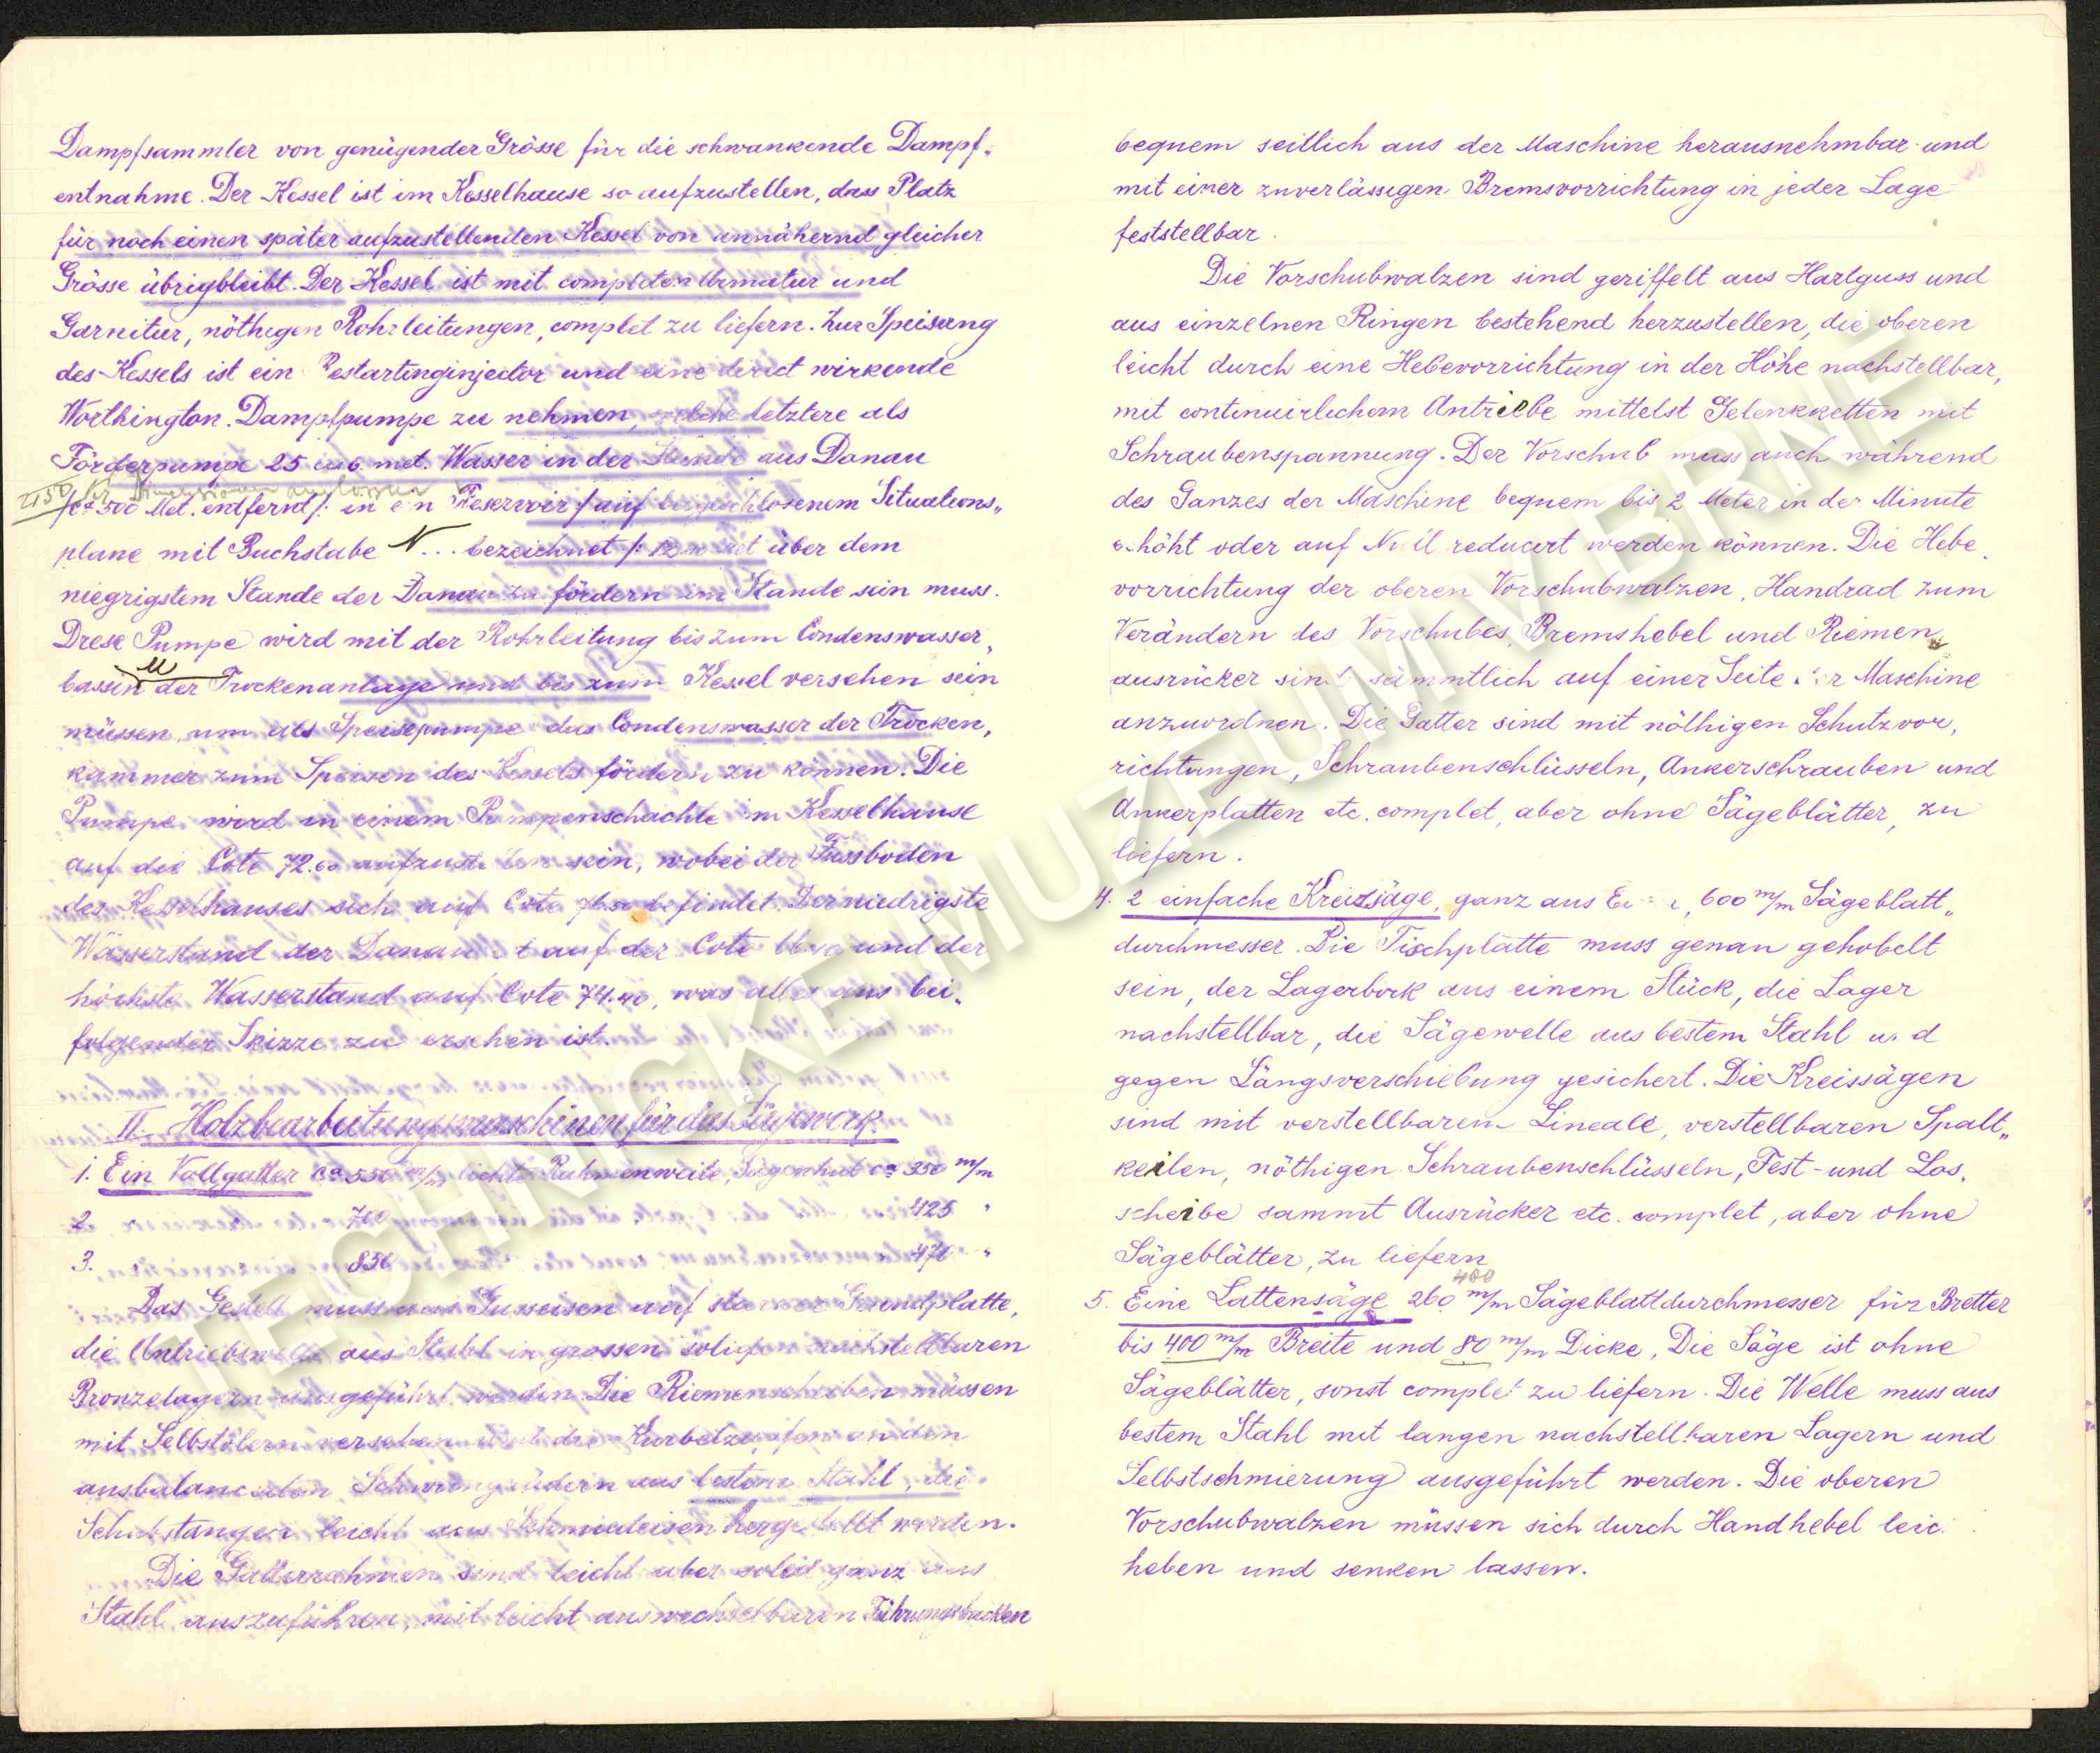 Dampfsammler von genügender Grösse für die schwankende Dampf„
entnahme. Der Kessel ist im Kesselhause so aufzustellen, dass Platz
für noch einen später aufzustellenden Kessel von annähernd gleicher
Grösse übrigbleibt. Der Kessel ist mit completen Armatur und
Garnitur, nöthigen Rohrleitungen, complet zu liefern. Zur Speisung
des Kessels ist ein Restartinginjector und eine direct wirkende
Worthington. Dampfpumpe zu nehmen, welche letztere als
Förderpumpe 25 cub. met. Wasser in der Stunde aus Donau
/ca 500 Met. entfernt/: in ein Reservoir / auf beigeschlossenem Situations„
plane mit Buchstabe N... bezeichnet /: über dem
niegrigstem Stande der Donau zu fördern im Stande sein muss.
Diese Pumpe wird mit der Rohrleitung bis zum Condenswasser„
bassin der Trockenanlage und bis zum Kessel versehen sein
müssen um als Speisepumpe das Condenswasser der Trocken„
kammer zum Speisen des Kessels fördern zu können. Die
Pumpe wird in einem Pumpenschachte im Kesselhause
auf die Cote 72.60 aufzustellen sein, wobei der Fussboden
des Kesselhauses sich auf Cote befindet. Der niedrigste
Wasserstand der Donau ist auf der Cote und der
höchste Wasserstand auf Cote 74.40, was alles aus bei„
folgender Skizze zu ersehen ist.
II. Holzbearbeitungsmaschinen für das Sägewerk.
1. Ein Vollgatter ca 550 m/m lichte Rahmenweite, Sägenhub ca 350 m/m
2. " " 700 " 425 "
3. 850 " 470 "
Das Gestell muss aus Gusseisen auf starker Grundplatte,
die Antriebswelle aus Stahl in grossen soliden nachstellbaren
Bronzelagern ausgeführt werden. Die Riemenscheiben müssen
mit Selbstölern versehen und die Kurbelzapfen an den
ausbalancirten Schwungrädern aus bestem Stahl, die
Schubstangen leicht aus Schmiedeisen hergestellt werden.
Die Gatterrahmen sind leicht aber solid ganz aus
Stahl auszuführen, mit leicht auswechselbaren Führungsbacken
bequem seitlich aus der Maschine herausnehmbar und
mit einer zuverlässigen Bremsvorrichtung in jeder Lage
feststellbar.
Die Vorschubwalzen sind geriffelt aus Hartguss und
aus einzelnen Ringen bestehend herzustellen, die oberen
leicht durch eine Hebevorrichtung in der Höhe nachstellbar,
mit continuirlichem Antriebe mittelst Gelenkketten mit
Schraubenspannung. Der Vorschub muss auch während
des Ganzes der Maschine bequem bis 2 Meter in der Minute
erhöht oder auf Null reducirt werden können. Die Hebe„
vorrichtung der oberen Vorschubwalzen, Handrad zum
Verändern des Vorschubes, Bremshebel und Riemen„
ausrücker sind sämmtlich auf einer Seite der Maschine
anzuordnen. Die Gatter sind mit nöthigen Schutzvor„
richtungen, Schraubenschlüsseln, Ankerschrauben und
Ankerplatten etc. complet, aber ohne Sägeblätter, zu
liefern.
4. 2 einfache Kreissäge, ganz aus Eisen, 600 m/m Sägeblatt„
durchmesser. Die Tischplatte muss genau gehobelt
sein, der Lagerbock aus einem Stück, die Lager
nachstellbar, die Sägewelle aus bestem Stahl und
gegen Längsverschiebung gesichert. Die Kreissägen
sind mit verstellbarem Lineale, verstellbaren Spalt„
keilen, nöthigen Schraubenschlüsseln, Fest- und Los„
scheibe sammt Ausrücker etc. complet, aber ohne
Sägeblätter, zu liefern
400
5. Eine Lattensäge 260 m/m Sägeblattdurchmesser für Bretter
bis 400 m/m Breite und 80 m/m Dicke, Die Säge ist ohne
Sägeblätter, sonst complet zu liefern. Die Welle muss aus
bestem Stahl mit langen nachstellbaren Lagern und
Selbstschmierung ausgeführt werden. Die oberen
Vorschubwalzen müssen sich durch Handhebel leicht
heben und senken lassen.
TECHNICKÉ MUZEUM V BRNĚ